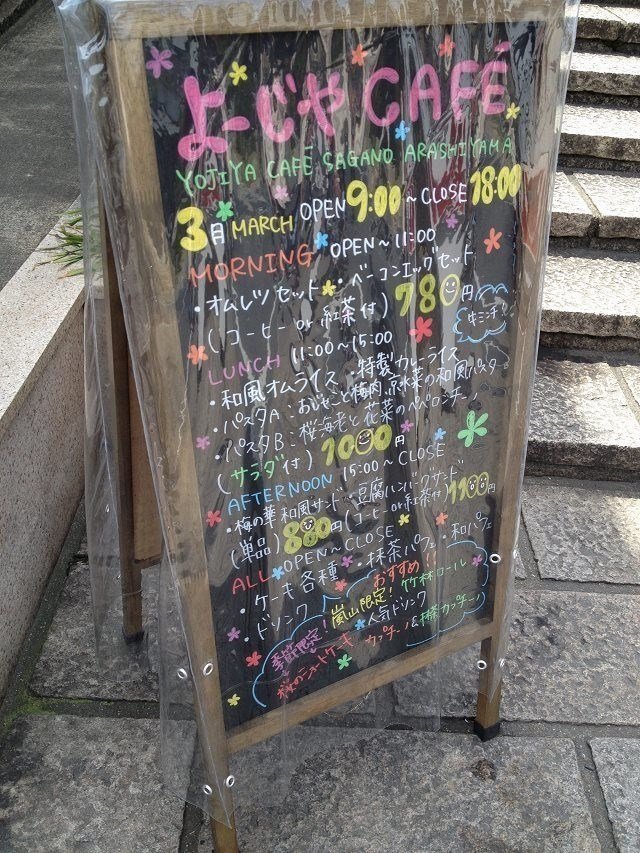 よーじや CAFÉ
YOJIYA CAFÉ SAGANO ARASHIYAMA
3月 MARCH OPEN 9:00～CLOSE 18:00
MORNING OPEN～11:00
・オムレツセット・ベーコンエッグセット
(コーヒー or 紅茶付) 780円
LUNCH 11:00～15:00
・和風オムライス・特製カレーライス
・パスタA:おじゃこと梅肉、京水菜の和風パスタ
・パスタB:桜海老と花菜のペペロンチーノ
(サラダ付) 1000円
AFTERNOON 15:00～CLOSE
・梅の華 和風サンド・豆腐ハンバーグサンド
(単品) 880円 (コーヒー or 紅茶付) 1100
ALL OPEN～CLOSE
・ケーキ各種・抹茶パフェ・和パフェ
・ドリンク
おすすめ!!
嵐山限定! 竹林ロール
季節限定!
桜のショートケーキ
人気ドリンク
カプチーノ&抹茶カプチーノ